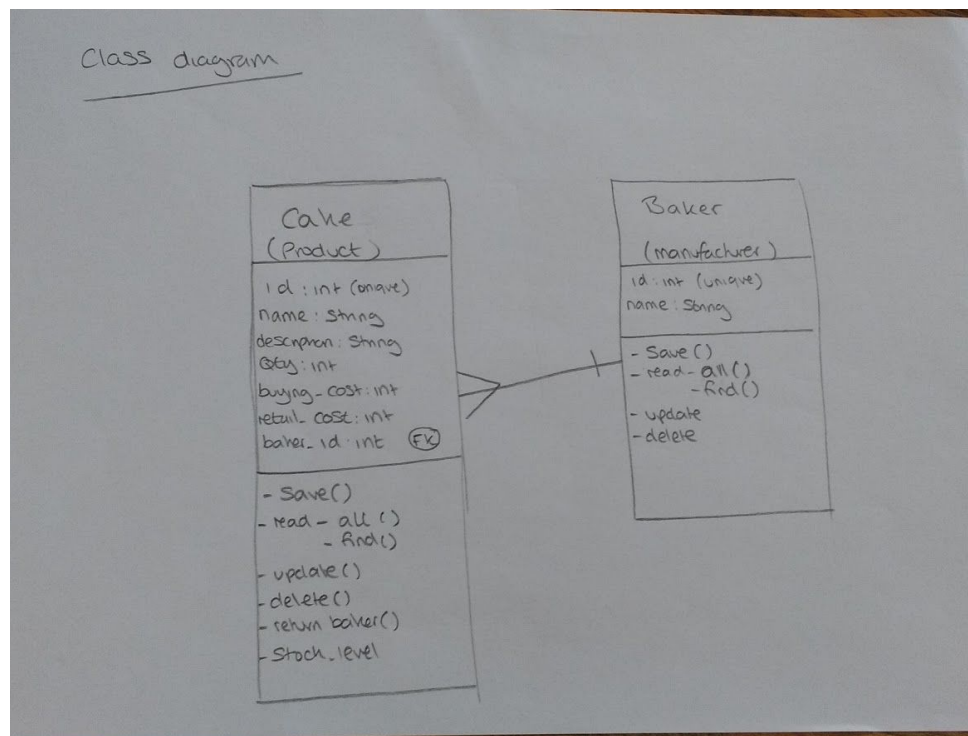 Class diagram
Cake
(Product)
id : int (unique)
name : String
description : String
Qty : int
buying_cost : int
retail_cost : int
baker_id : int FK
- Save()
- read - all ()
- find()
- update()
- delete()
- return baker()
- Stock_level
Baker
(manufacturer)
id : int (unique)
name : String
- Save()
- read - all()
- find()
- update
- delete